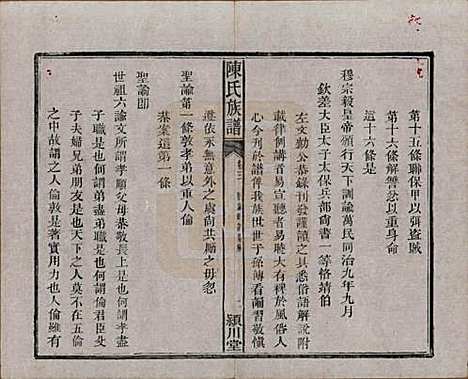 第十五條聯保甲以弭盜賊
第十六條解讐忿以重身命
這十六條是
穆宗毅皇帝頒行天下訓諭萬民同治九年九月
欽差大臣太子太保兵部尚書一等恪靖伯
左文勤公恭錄刊發謹讀之其悉俗語解說附
載律例講者易宣聽者易曉大有稗於風俗人
心今刊於譜俾我族世世子孫傳看爛習敬愼
遵依永無意外之虞尚共勗之毋忽
聖諭第一條敦孝弟以重人倫
恭案這第一條
聖諭即
世祖六諭文所謂孝順父母恭敬長上是也何謂孝盡
子職是也何謂弟盡弟職是也何謂人倫君臣父
子夫婦兄弟朋友是也天下的人不在五倫
之中故謂之人倫於人倫上著實用力也人倫雖有
陳氏族譜
卷三
潁川堂